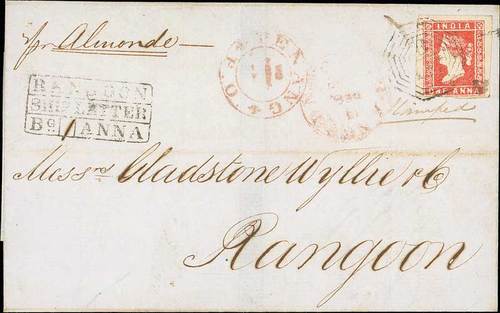 pr Almonde
INDIA
ONE ANNA
PENANG
Stamped
RANGOON
SHIP LETTER
Bg 1 ANNA
Messrs Gladstone Wyllie & Co
Rangoon